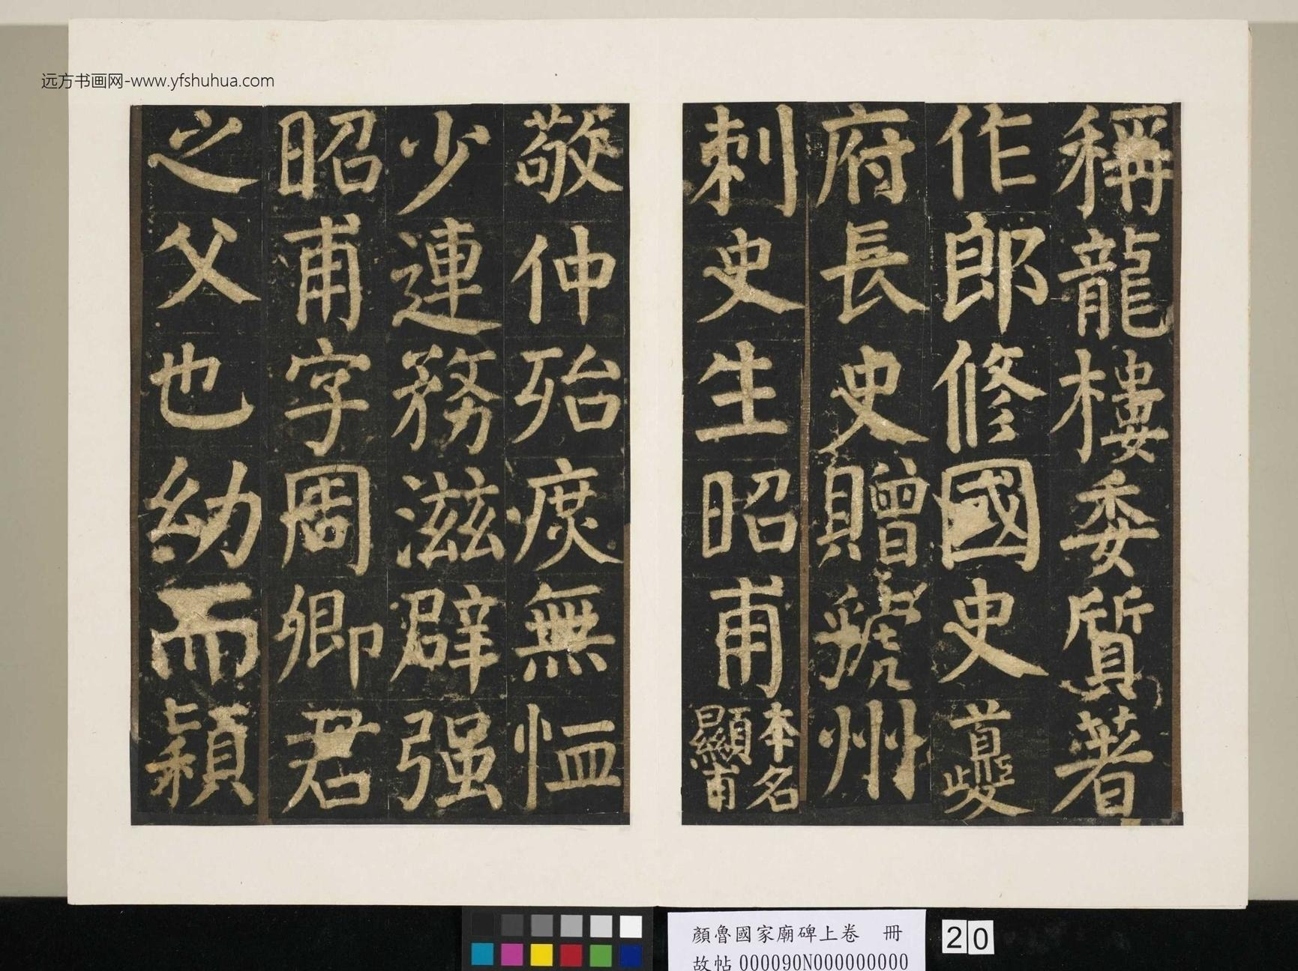 远方书画网-www.yfshuhua.com
稱龍樓委質著
作郎修國史夔
府長史贈虢州
刺史生昭甫本名顯甫
敬仲殆庶無恤
少連務滋辟强
昭甫字周卿君
之父也幼而穎
顏魯國家廟碑上卷 冊
故帖 000090N000000000
20